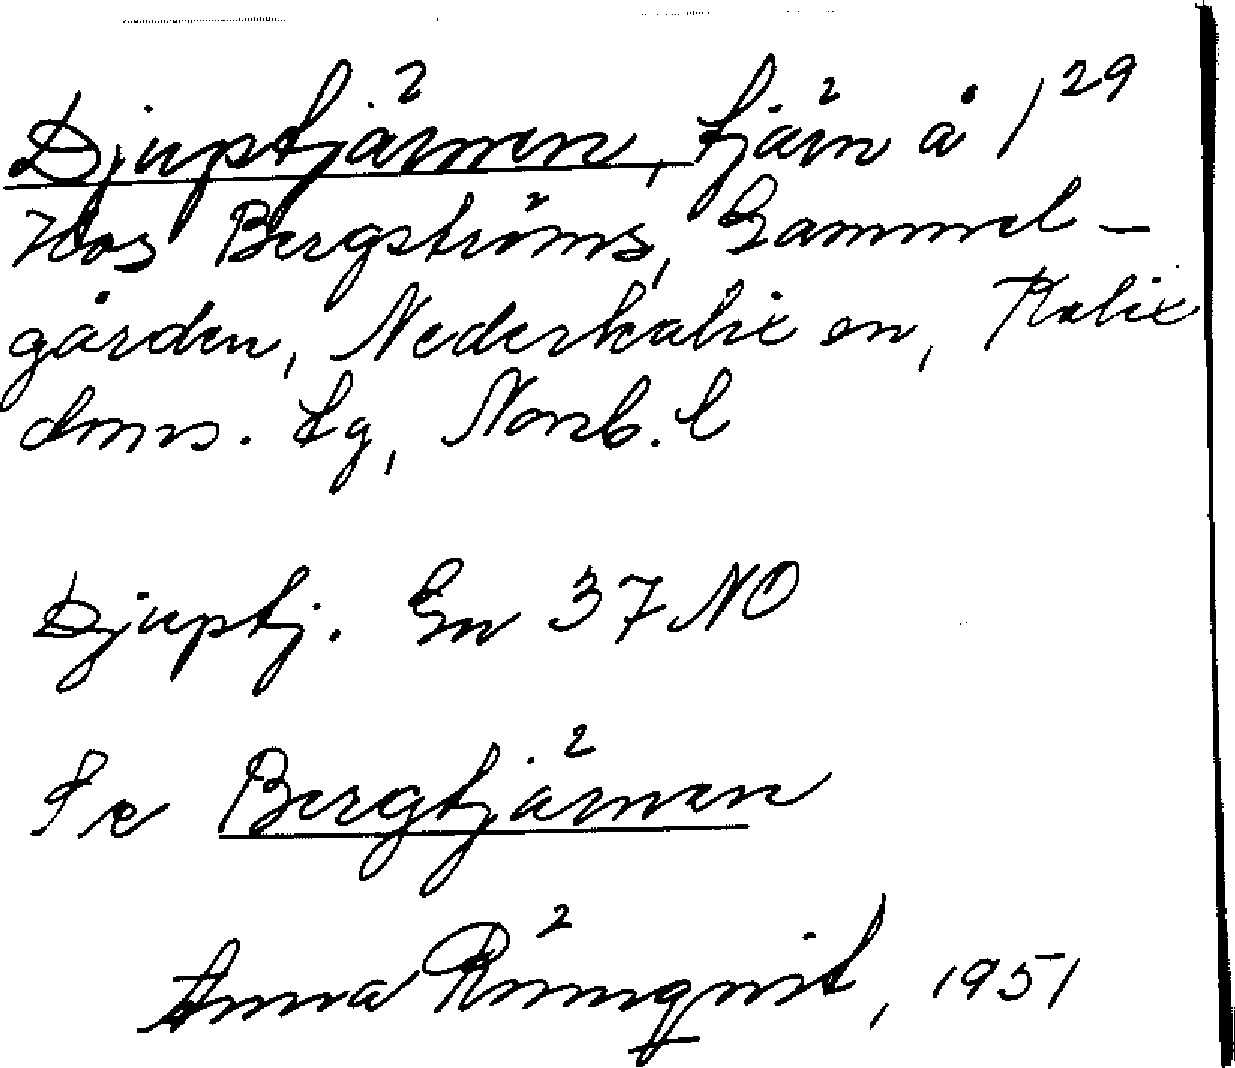 Djuptjärnen, tjärn å 1²⁹
Hos Bergströms, Gammel-
gården, Nederkalix sn, Kalix
doms. tg, Norrb. l
Djuptj. En 37 NO
Se Bergtjärnen
Anna Rönnqvist, 1951